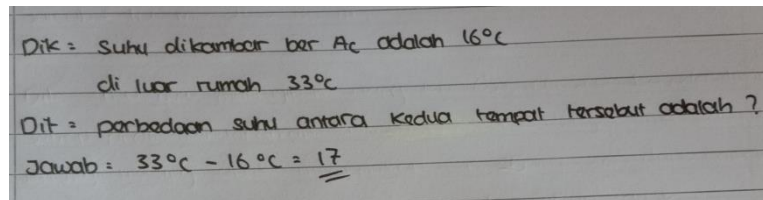 Dik = Suhu dikambar ber Ac adalah 16°C
di luar rumah 33°C
Dit = perbedaan suhu antara kedua tempat tersebut adalah ?
Jawab = 33°C - 16°C = 17